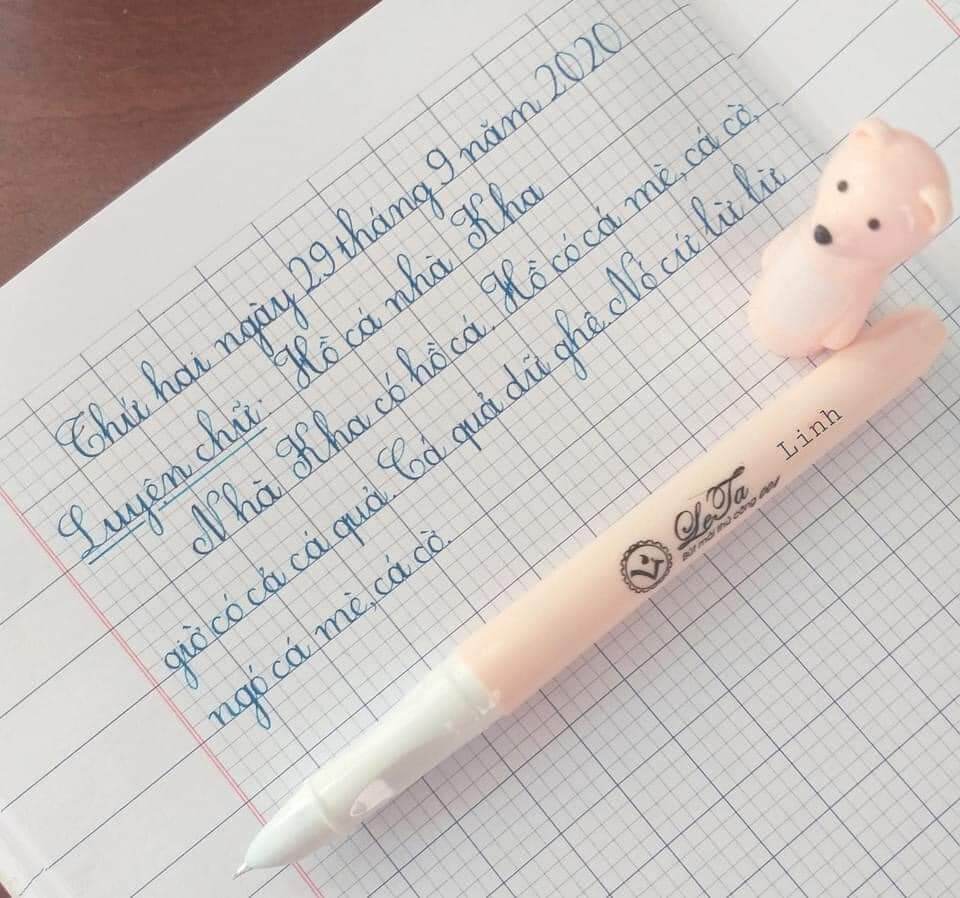 Thứ hai ngày 29 tháng 9 năm 2020
Luyện chữ: Hồ cá nhà Kha
Nhà Kha có hồ cá. Hồ có cá mè, cá cờ,
giờ có cả cá quả. Cá quả dữ ghê. Nó cứ lừ lừ
ngó cá mè, cá cờ.
LeTa
Bút mài thủ công 004
Linh